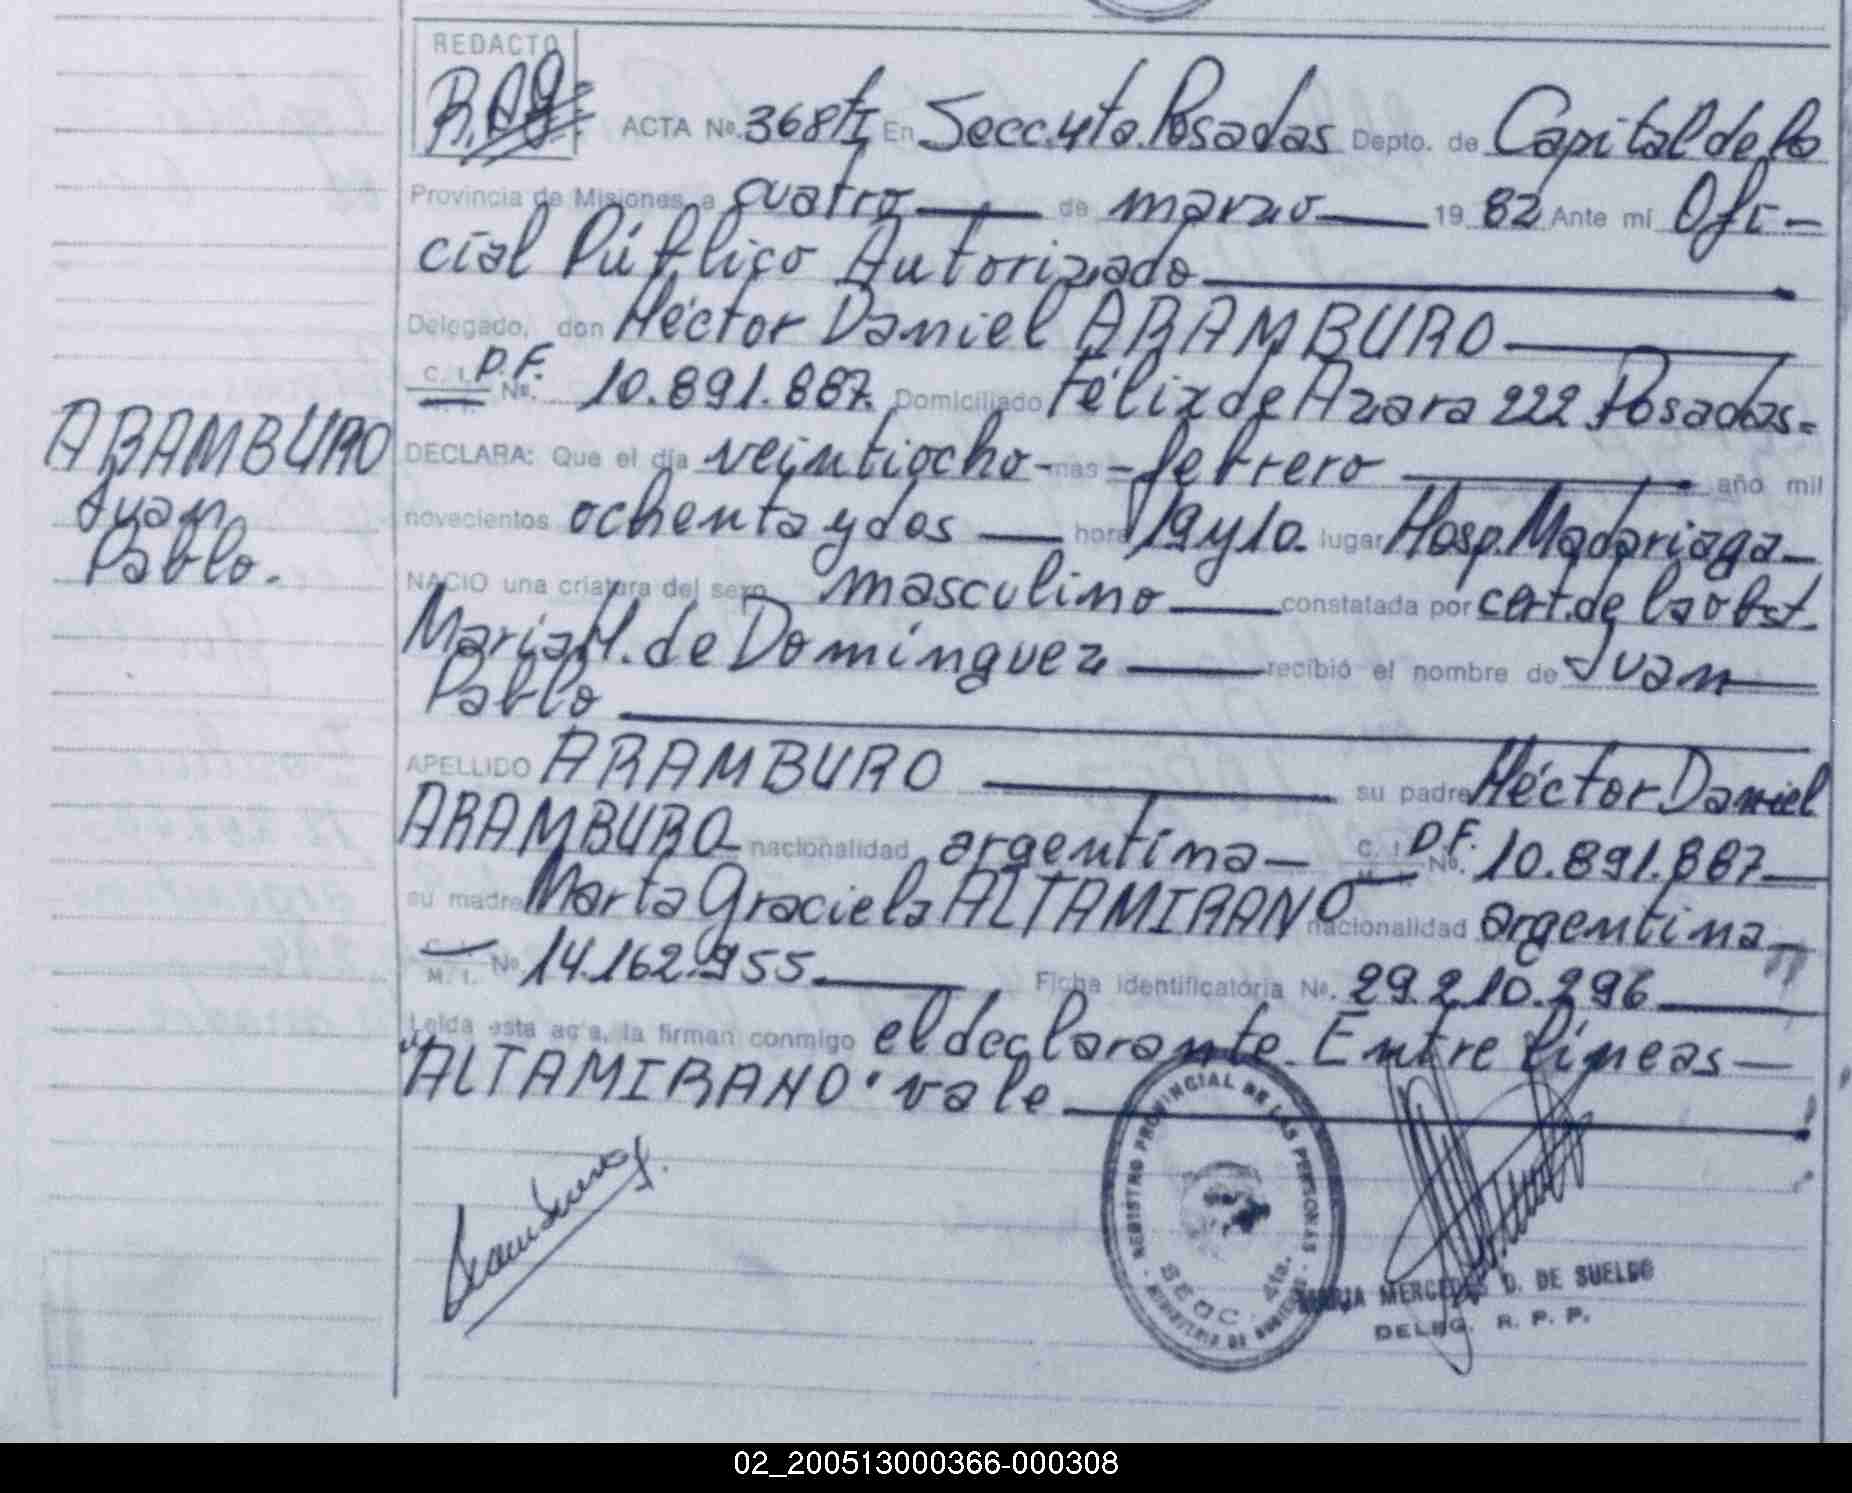 REDACTO
ACTA Nº. 368 tI En Secc. 4ta. Posadas Depto. de Capital de la
Provincia de Misiones, a cuatro de marzo 19 82 Ante mí Ofi-
cial Público Autorizado
Delegado, don Héctor Daniel ARAMBURO
C. I. D.F. Nº. 10.891.887. Domiciliado Félix de Azara 222 Posadas=
DECLARA: Que el día veintiocho - mes - febrero año mil
novecientos ochenta y dos hora 19 y 10. lugar Hosp. Madariaga-
NACIO una criatura del sexo masculino constatada por cert. de la obst.
María H. de Domínguez recibió el nombre de Juan
Pablo
APELLIDO ARAMBURO su padre Héctor Daniel
ARAMBURO nacionalidad argentina- C. I. D.F. Nº. 10.891.887
su madre Marta Graciela ALTAMIRANO nacionalidad argentina
C. I. M. I. Nº 14.162.955 Ficha identificatoria Nº. 29.210.296
Leída esta acta, la firman conmigo el declarante. Entre líneas-
"ALTAMIRANO" vale
ARAMBURO
Juan
Pablo.
REGISTRO PROVINCIAL DE LAS PERSONAS
SECC. 4ta.
MARIA MERCEDES D. DE SUELDO
DELEG. R. P. P.
02_200513000366-000308